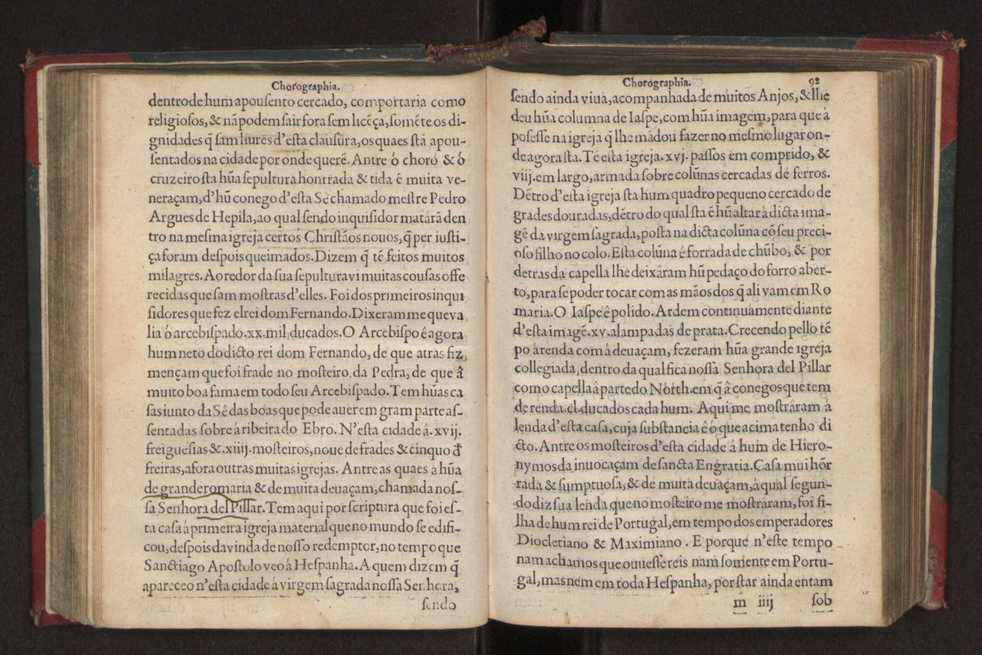 Chorographia.
dentro de hum apousento cercado, comportaria como
religiosos, & nã podem sair fora sem licẽça, somẽte os di-
gnidades q̃ sam liures d'esta clausura, os quaes stã apou-
sentados na cidade por onde querẽ. Antre ó choró & ò
cruzeiro sta hũa sepultura honrrada & tida ẽ muita ve-
neraçam, d'hũ conego d'esta Sé chamado mestre Pedro
Argues de Hepila, ao qual sendo inquisidor matarã den
tro na mesma igreja certos Christãos nouos, q̃ per iusti-
ça foram despois queimados. Dizem q̃ tẽ feitos muitos
milagres. Ao redor da sua sepultura vi muitas cousas offe
recidas que sam mostras d'elles. Foi dos primeiros inqui
sidores que fez el rei dom Fernando. Dixeram me que va
lia ò arcebispado .xx. mil ducados. O Arcebispo é agora
hum neto do dicto rei dom Fernando, de que atras fiz
mençam que foi frade no mosteiro da Pedra, de que â
muito boa fama em todo seu Arcebispado. Tem hũas ca
sas iunto da Sé das boas que pode auer em gram parte as-
sentadas sobre à ribeira do Ebro. N'esta cidade â .xvij.
freiguesias & .xiiij. mosteiros, noue de frades & cinquo d̃
freiras, afora outras muitas igrejas. Antre as quaes a hũa
de grande romaria & de muita deuaçam, chamada nos-
sa Senhora del Pillar. Tem aqui por scriptura que foi es-
ta casa à primeira igreja material que no mundo se edifi-
cou, despois da vinda de nosso redemptor, no tempo que
Sanctiago Apostolo veo à Hespanha. A quem dizem q̃
apareceo n'esta cidade à virgem sagrada nossa Senhora,
sendo
Chorographia. 92
sendo ainda viua, acompanhada de muitos Anjos, & lhe
deu hũa columna de Iaspe, com hũa imagem, para que à
posesse na igreja q̃ lhe mãdou fazer no mesmo lugar on-
de agora sta. Tẽ esta igreja .xvj. passos em comprido, &
viij. em largo, armada sobre colũnas cercadas de ferros.
Dẽtro d'esta igreja sta hum quadro pequeno cercado de
grades douradas, dẽtro do qual sta ẽ hũ altar à dicta ima-
gẽ da virgem sagrada, posta na dicta colũna cõ seu preci-
oso filho no colo. Esta colũna é forrada de chũbo, & por
detras da capella lhe deixàram hũ pedaço do forro aber-
to, para se poder tocar com as mãos dos q̃ ali vam em Ro
maria. O Iaspe é polido. Ardem continuamente diante
d'esta imagẽ .xv. alampadas de prata. Crecendo pello tẽ
po à renda com à deuaçam, fezeram hũa grande igreja
collegiada, dentro da qual fica nossa Senhora del Pillar
como capella à parte do North. em q̃ â conegos que tem
de renda .cl. ducados cada hum. Aqui me mostráram à
lenda d'esta casa, cuja substancia é ò que acima tenho di
cto. Antre os mosteiros d'esta cidade â hum de Hiero-
nymos da inuocaçam de sancta Engratia. Casa mui hõr
rada & sumptuosa, & de muita deuaçam, à qual segun-
do diz sua lenda que no mosteiro me mostráram, foi fi-
lha de hum rei de Portugal, em tempo dos emperadores
Diocletiano & Maximiano. E porque n'este tempo
nam achamos que ouuesse reis nam somente em Portu-
gal, mas nem em toda Hespanha, por star ainda entam
m iiij sob